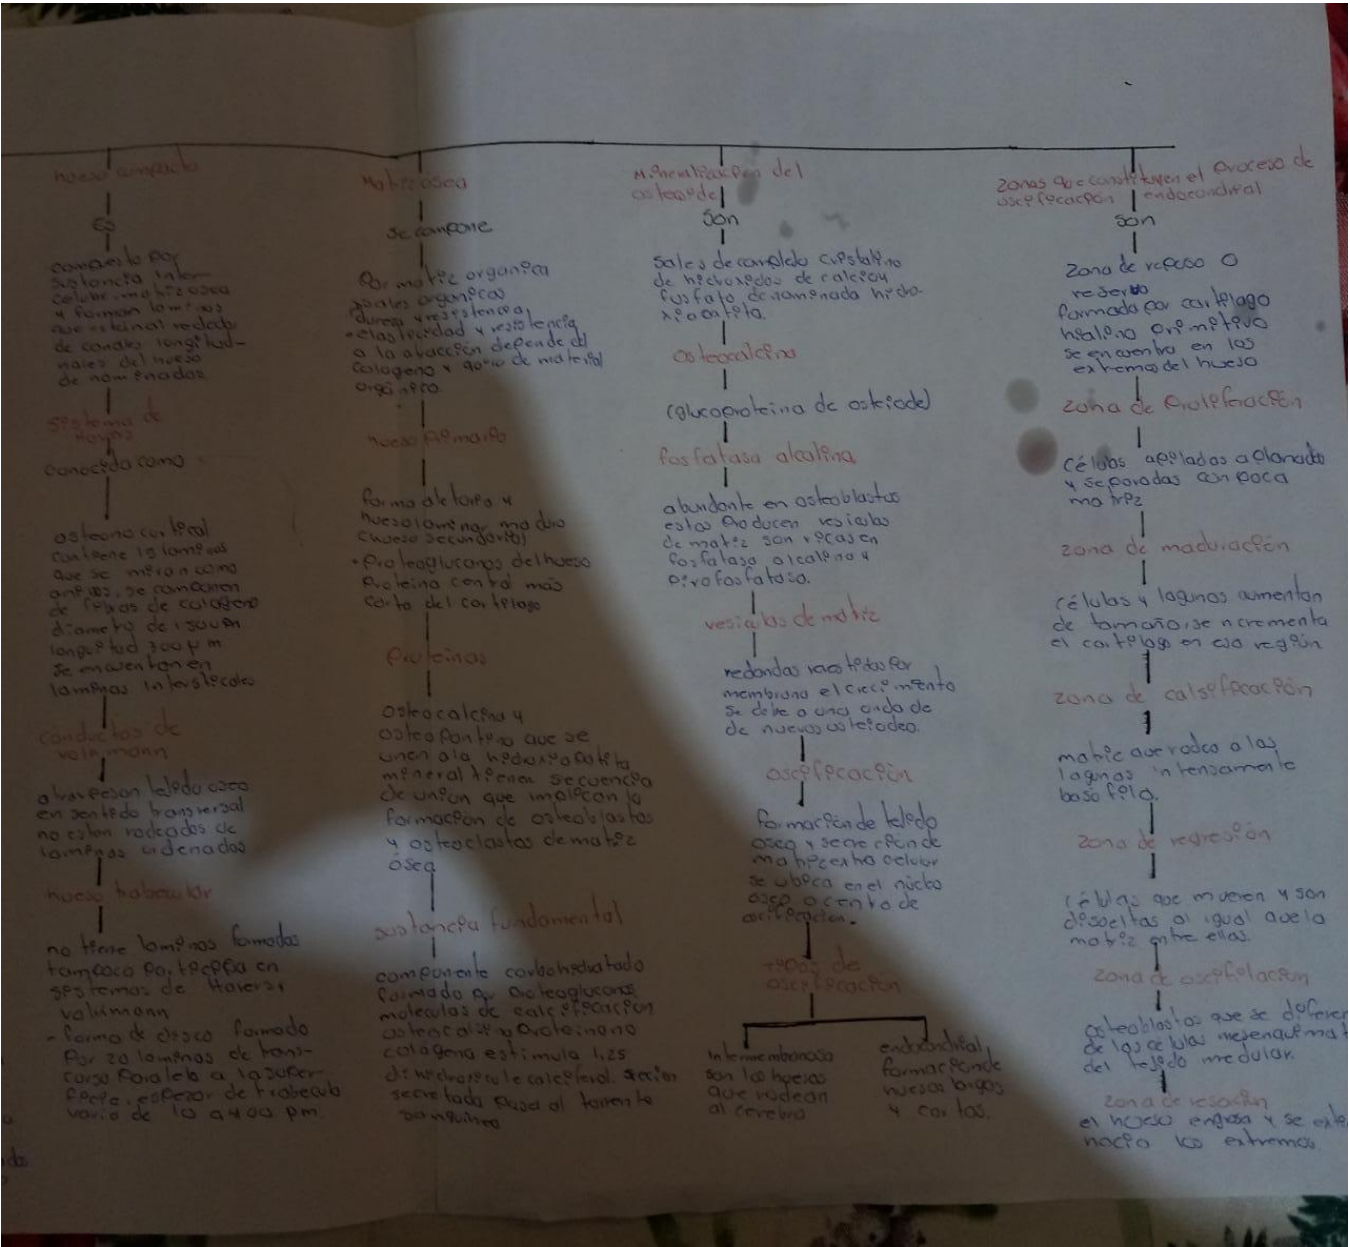 hueso compacto
Es
compuesto por
sustancia inter-
celular matriz osea
y forman laminas
que estan al rededor
de canales longitud-
nales del hueso
denominados
sistema de
Havers
conocida como
osteona cortical
contiene 10 laminas
que se miran como
anillos, se componen
de fibras de colageno
diametro de
longuitud 300 µm
se encuentan en
laminas intersticiales
conductos de
volkmann
atraviesan tejido oseo
en sentido transversal
no estan rodeados de
laminas ordenados
hueso trabecular
no tiene laminas formadas
tampoco participa en
sistemas de Havers,
volkmann
- forma de disco formado
por 20 laminas de trans-
curso paralelo a la super-
ficie. espezor de trabecula
vario de 10 a 400 µm.
Matriz osea
se compone
Por matriz organica
y sales organicas
dureza y resistencia
• elasticidad y resistencia
a la atracción depende del
Colageno y 90% de material
orgánico.
hueso primario
forma aleatoria y
hueso laminar maduro
(hueso secundario)
• Proteoglucanos del hueso
Proteina central más
corta del cartilago
Proteinas
Osteocalcina y
osteopontina que se
unen a la hidroxiapatita
mineral tienen secuencia
de union que implican la
formacion de osteoblastos
y osteoclastos de matiz
ósea
sustancia fundamental
componente carbohidratado
formado por Proteoglucano
moleculas de calcificacion
osteocalcina Proteina no
colagena estimula 1,25
secretada pasa al torrente
sanguineo
Mineralización del
osteoide
son
Sales de complejo cristalino
de hidroxidos de calcio y
fosfato denominada hidro-
xiapatita.
osteocalcina
(glucoproteina de osteiode)
fosfatasa alcalina
abundante en osteoblastos
estos Producen vesiculas
de matiz son ricas en
fosfatasa alcalina y
pirofosfatasa.
vesiculas de matriz
redondas revestidas por
membrana el crecimiento
se debe a una onda de
de nuevos osteiodeo.
osificación
formación de tejido
oseo y secreción de
matriz extra celular
se ubica en el núcleo
oseo o centro de
osificación.
tipos de
osificación
Intermembanosa
son los huesos
que rodean
al cerebro
endocondrial,
formación de
huesos largos
y cortos.
zonas que constituyen el Proceso de
osificación endocondrial
son
zona de reposo o
reserva
formada por cartilago
hialino primitivo
se encuentra en los
extremos del hueso
zona de Proliferación
células apiladas aplanada
y separadas con poca
matriz
zona de maduración
células y lagunas aumentan
de tamaño, se incrementa
el cartilago en esa región
zona de calsificación
matriz que rodea a las
lagunas intensamente
basofila.
zona de regresión
células que mueren y son
disueltas al igual que la
matriz entre ellas.
zona de
osteoblastos que se diferen
de las celulas mesenquimat
del tejido medular.
zona de
el hueso engrosa y se exte
hacia los extremos.